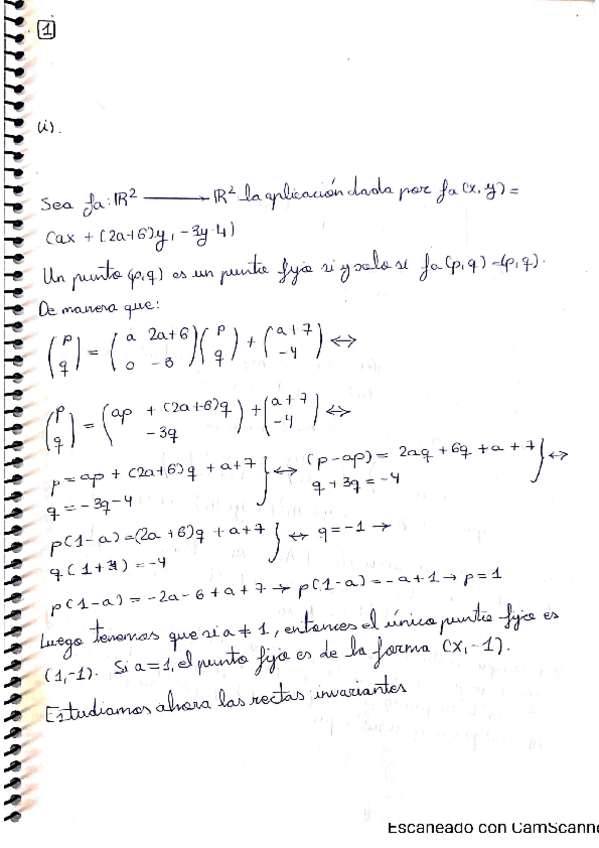 1
(i).
Sea fa: ℝ² ⟶ ℝ² la aplicación dada por fa(x,y) =
(ax + (2a+6)y, -3y-4)
Un punto (p,q) es un punto fijo si y solo si fa(p,q) = (p,q).
De manera que:
(p q) = (a 2a+6 0 -3)(p q) + (a+7 -4) ↔
(p q) = (ap + (2a+6)q -3q) + (a+7 -4) ↔
p = ap + (2a+6)q + a+7 } ↔ (p-ap) = 2aq + 6q + a + 7 } ↔
q = -3q-4 q + 3q = -4
p(1-a) = (2a+6)q + a+7 } ↔ q = -1 →
q(1+3) = -4
p(1-a) = -2a-6+a+7 → p(1-a) = -a+1 → p = 1
Luego tenemos que si a ≠ 1, entonces el único punto fijo es
(1,-1). Si a=1, el punto fijo es de la forma (x,-1).
Estudiamos ahora las rectas invariantes
Escaneado con CamScanne